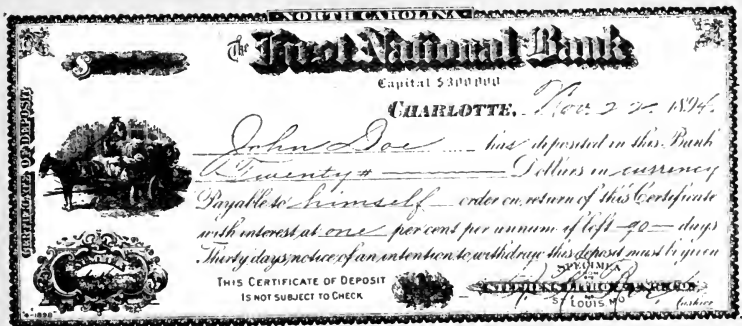 NORTH CAROLINA
The First National Bank
Capital $300000
CHARLOTTE, Nov. 22 1894.
John Doe has deposited in this Bank
Twenty # Dollars in currency
Payable to himself order on return of this Certificate
with interest at one per cent per annum if left 90 days
Thirty days, notice of an intention to withdraw this deposit must be given
THIS CERTIFICATE OF DEPOSIT
IS NOT SUBJECT TO CHECK
SPECIMEN
FROM
STEPHENS LITHO & ENG. CO.
ST LOUIS, MO.
Cashier
CERTIFICATE OF DEPOSIT